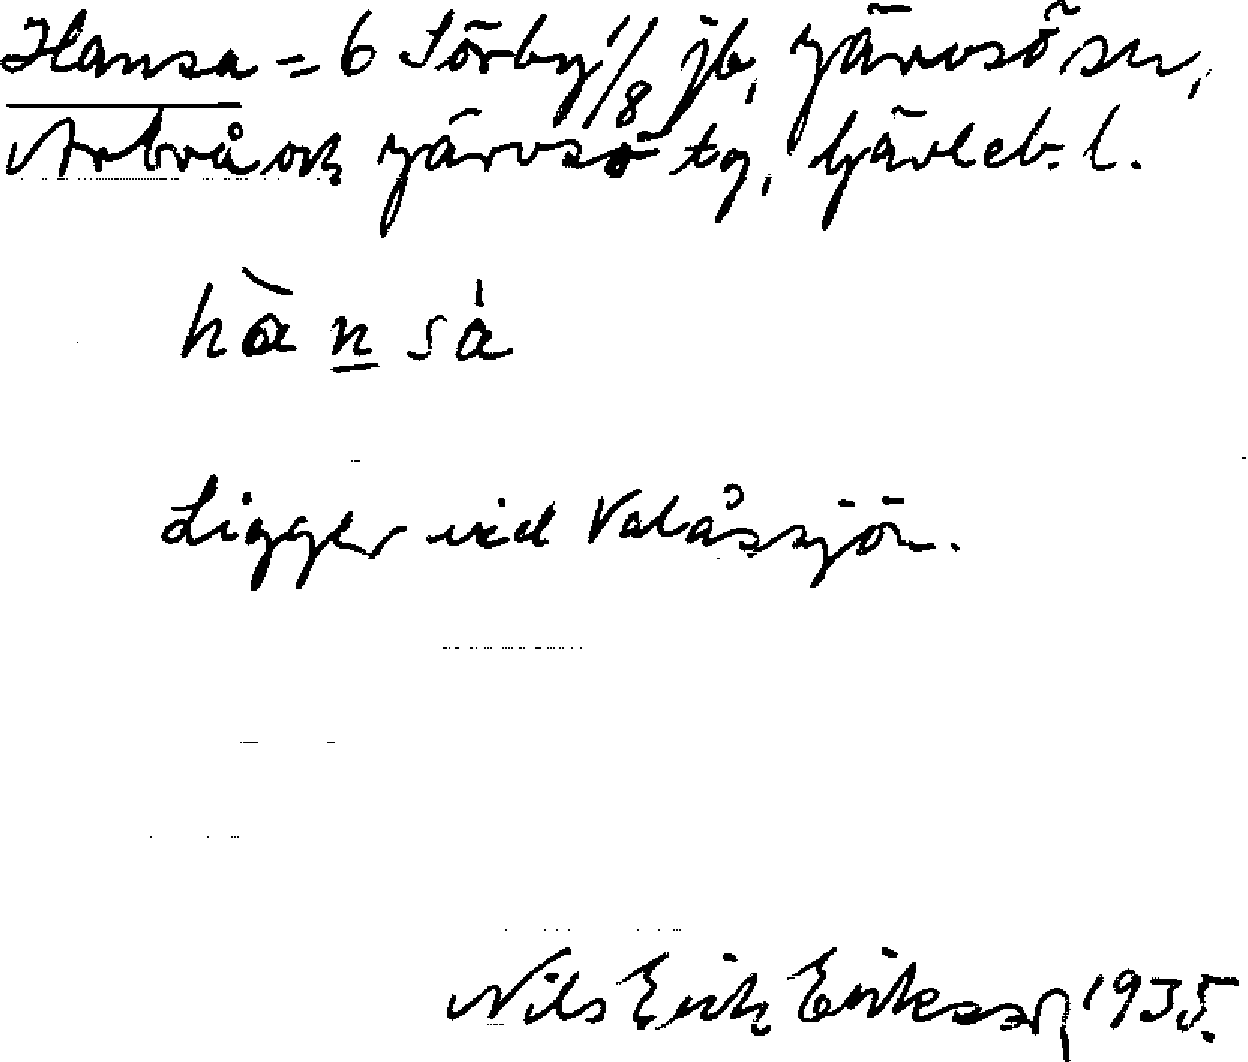 Hansa = 6 Sörby 1/8 jb, Järvsö sn,
Arbrå och Järvsö tg, Gävleb. l.
hà̄n̲sá
Ligger vid Valåssjön.
Nils Erik Eriksson 1935.